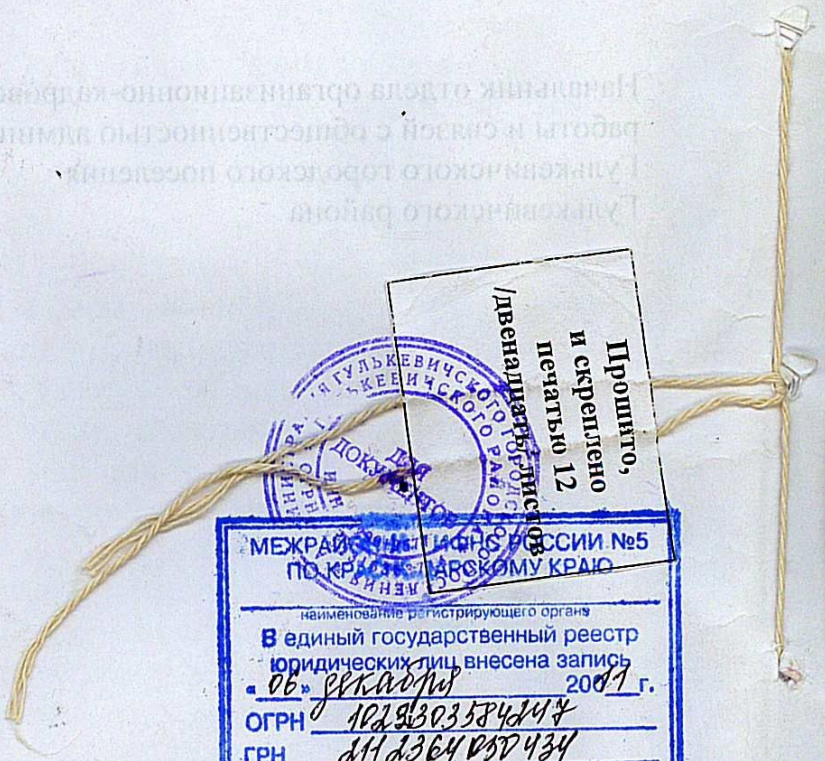 Начальник отдела организационно-кадрово
работы и связей с общественностью админи
Гулькевичского городского поселения
Гулькевичского района
Прошито,
и скреплено
печатью 12
/двенадцать/листов
ГУЛЬКЕВИЧСКОГО ГОРОДСКОГО
РАЙОНА
ДЛЯ
ДОКУМЕНТОВ
МЕЖРАЙОННАЯ ИФНС РОССИИ №5
ПО КРАСНОДАРСКОМУ КРАЮ
наименование регистрирующего органа
В единый государственный реестр
юридических лиц внесена запись
«06» декабря 2011 г.
ОГРН 1022303584247
ГРН 2112364030434